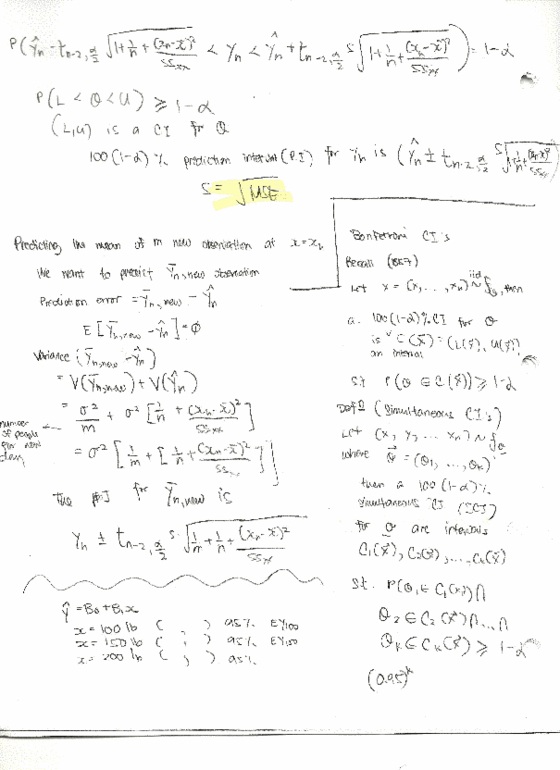 P(Ŷn - tn-2, α/2 s √(1+1/n+(xn-x̄)²/SSxx) < Yn < Ŷn + tn-2, α/2 s √(1+1/n+(xn-x̄)²/SSxx)) = 1-α
P(L < θ < U) ≥ 1-α
(L,U) is a CI for θ
100(1-α)% prediction interval (P.I) for Yn is (Ŷn ± tn-2, α/2 s √(1+1/n+(xn-x̄)²/SSxx))
S = √MSE
Predicting the mean of m new observation at x=xh
We want to predict Ȳn,new observation
Prediction error = Ȳn,new - Ŷn
E[Ȳn,new - Ŷn] = 0
Variance (Ȳn,new - Ŷn)
= V(Ȳn,new) + V(Ŷn)
= σ²/m + σ² [1/n + (xn-x̄)²/SSxx]
number of people per new
= σ² [1/m + [1/n + (xn-x̄)²/SSxx]]
The PI for Ȳn,new is
Yn ± tn-2, α/2 s √(1/m+1/n+(xn-x̄)²/SSxx)
Ŷ = B0+B1x
x = 100 lb ( , ) 95% EY100
x = 150 lb ( , ) 95% EY150
x = 200 lb ( , ) 95%
Bonferroni CI's
Recall
Let x = (x1, ..., xn) iid ~ fθ, then
a 100(1-α)% CI for θ
is C(x⃗) = (L(x⃗), U(x⃗))
an interval
st P(θ ∈ C(x⃗)) ≥ 1-α
Def (Simultaneous CI's)
Let (x, y, ... xn) ~ fθ
where θ⃗ = (θ1, ..., θk)
then a 100(1-α)%
simultaneous CI (SCI)
for θ are intervals
C1(x⃗), C2(x⃗), ..., Ck(x⃗)
st. P(θ1 ∈ C1(x⃗) ∩
θ2 ∈ C2(x⃗) ∩ ... ∩
θk ∈ Ck(x⃗)) ≥ 1-α
(0.95)^k